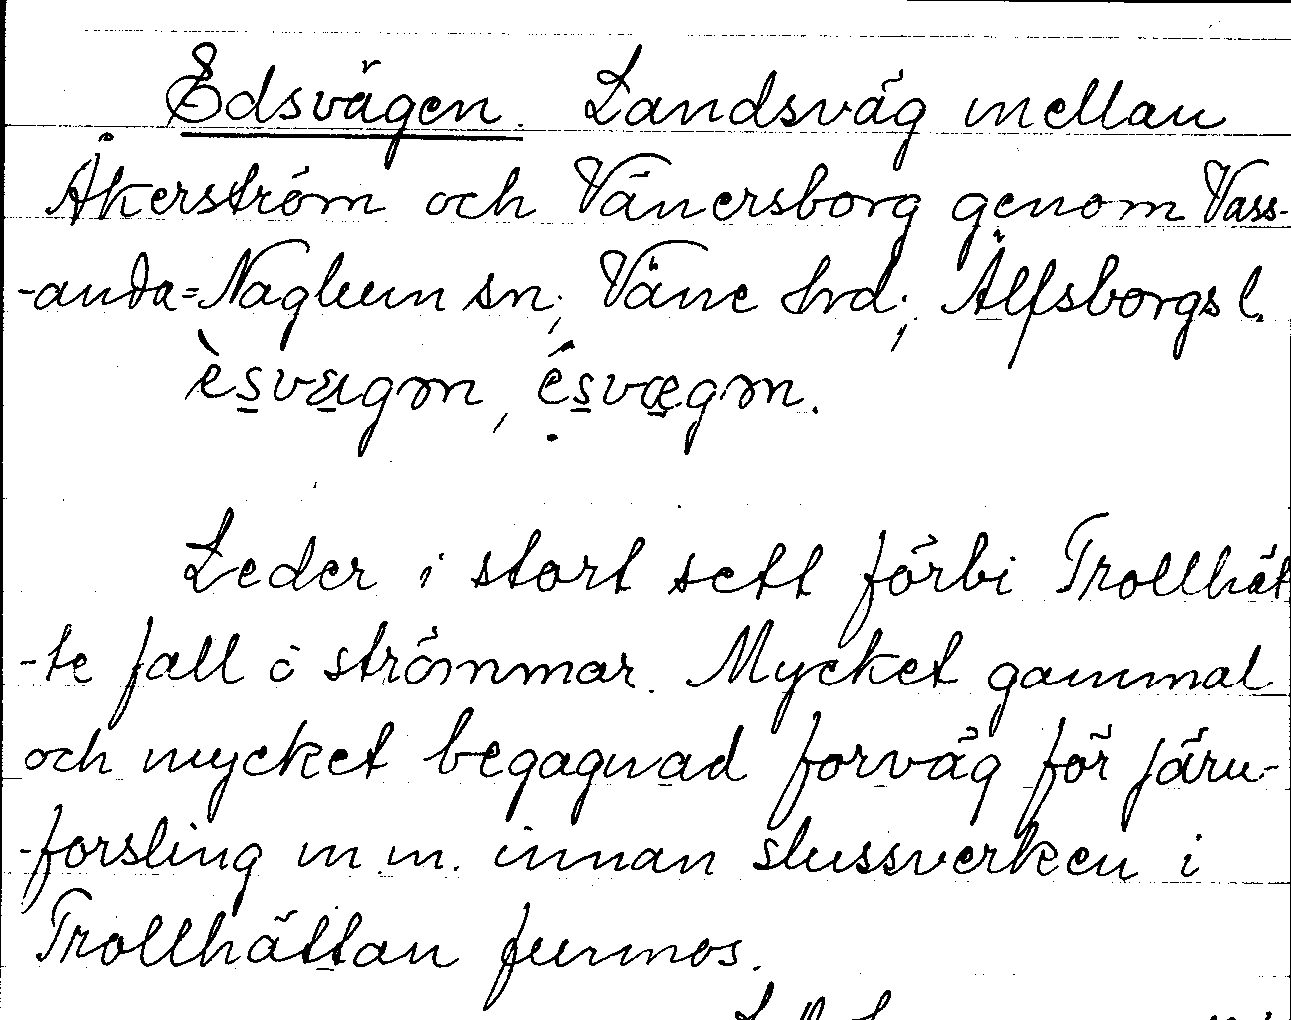 Edsvägen. Landsväg mellan
Åkerström och Vänersborg genom Vass-
-anda=Naglum sn; Väne hrd; Älfsborgs l.
Leder i stort sett förbi Trollhät
-te fall o strömmar. Mycket gammal
och mycket begagnad forväg för järn-
-forsling m.m. innan slussverken i
Trollhättan funnos.